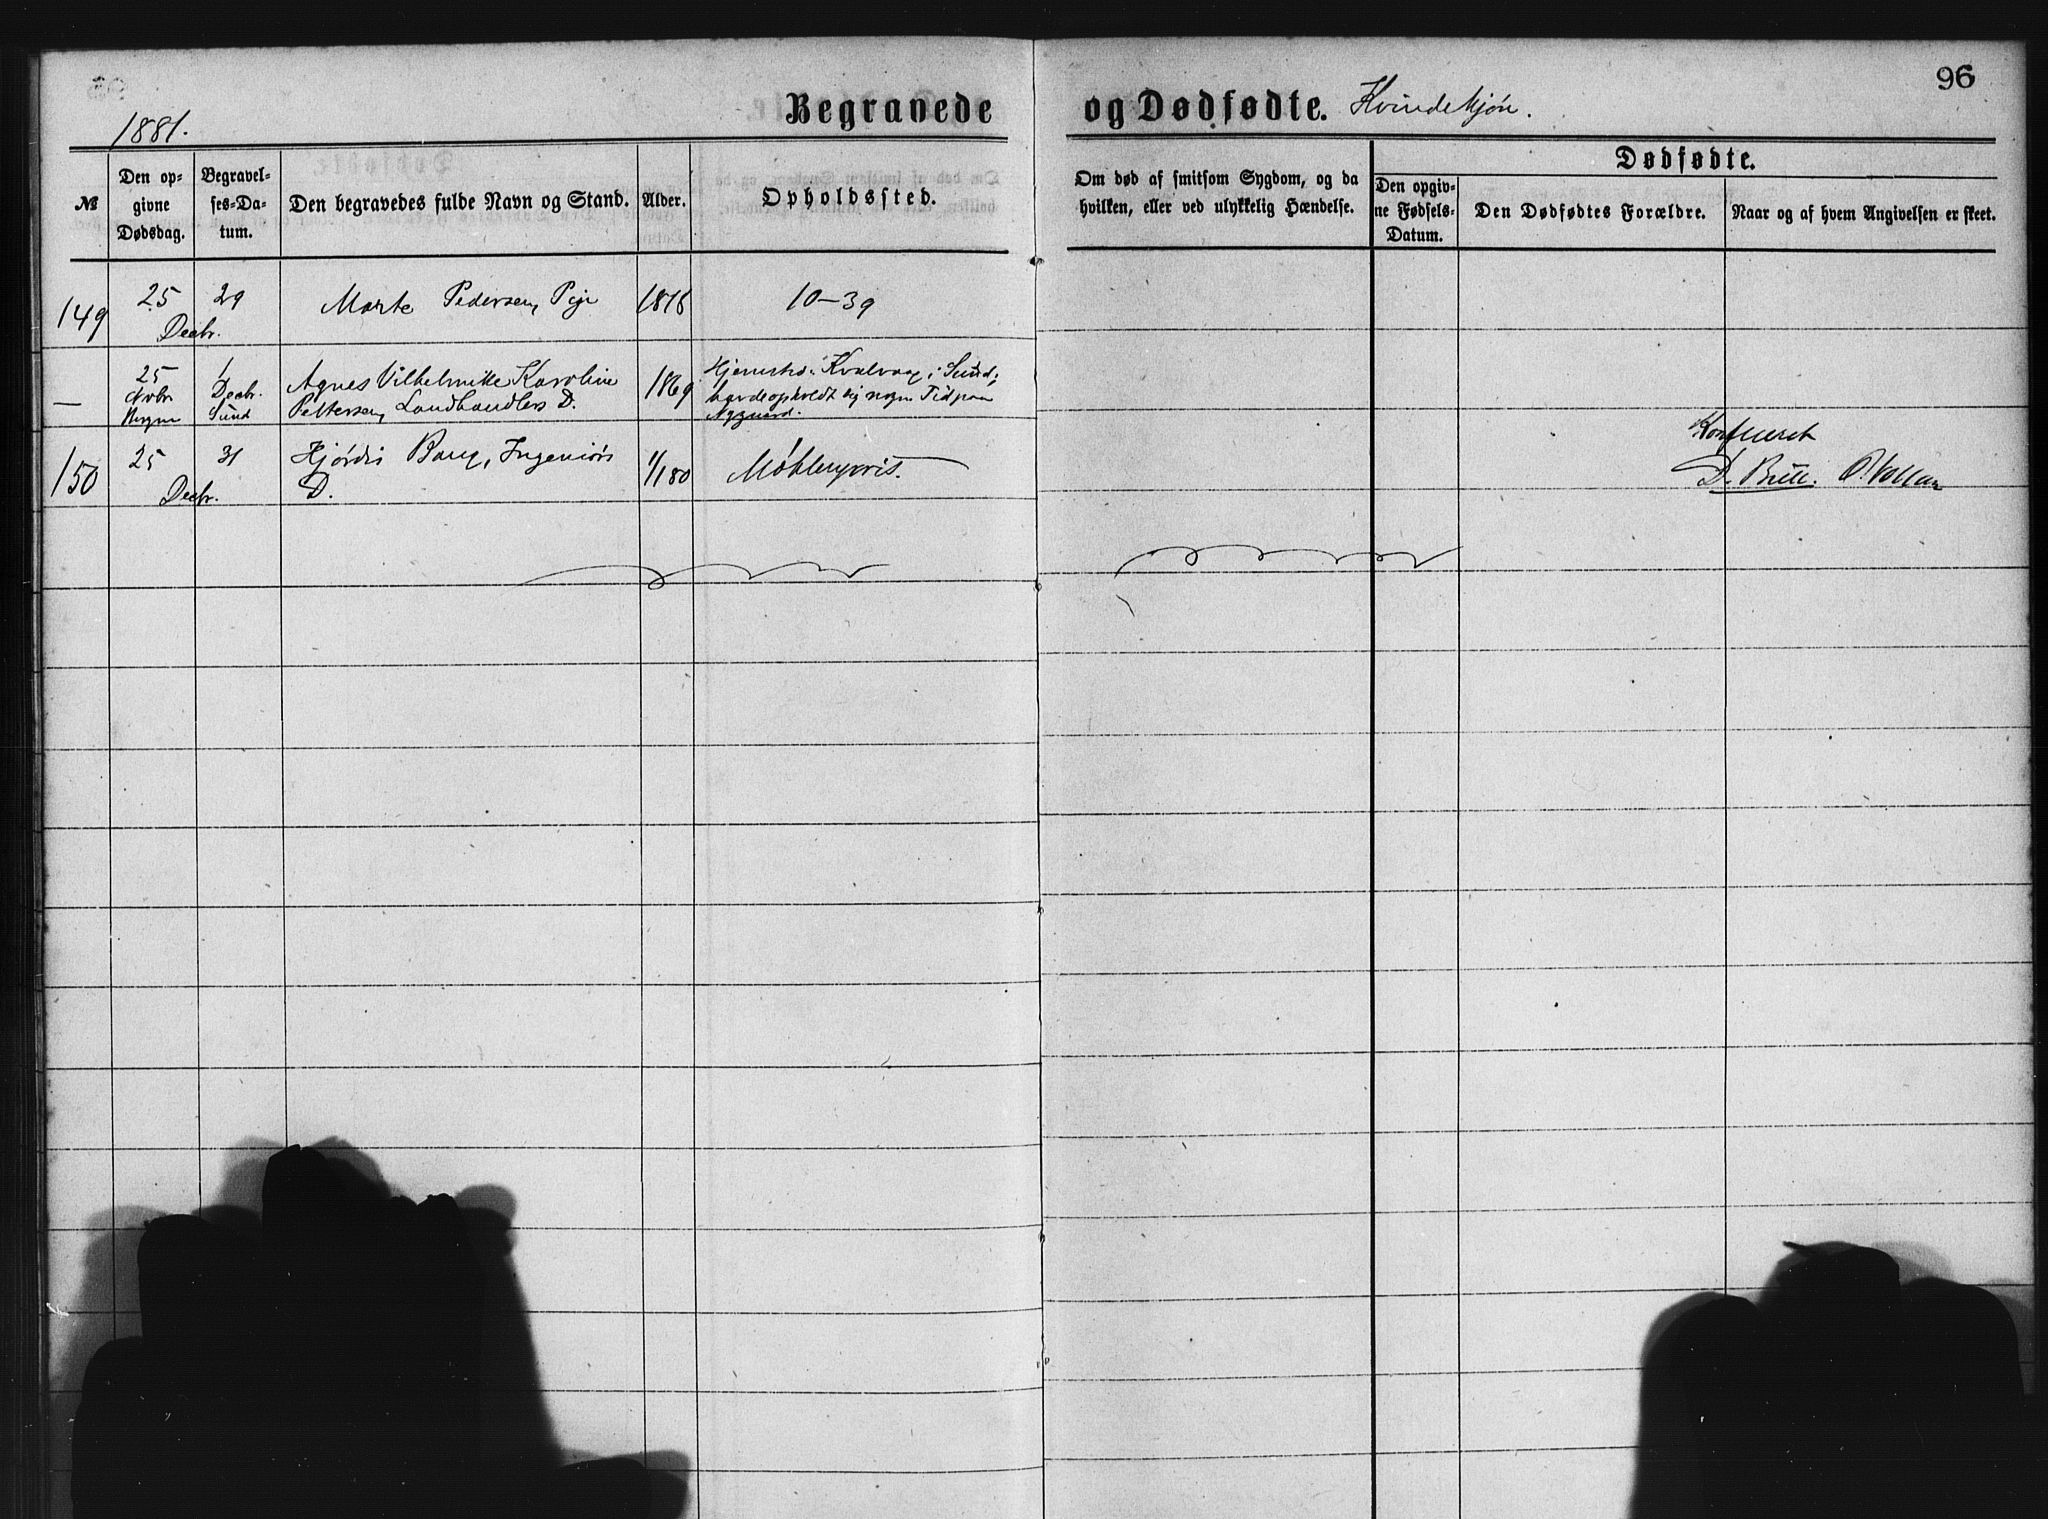 96
1881.
Begravede og Dødfødte. Kvindekjøn.
№
Den op-
givne
Dødsdag.
Begravel-
ses-Da-
tum.
Den begravedes fulde Navn og Stand.
Alder.
Opholdssted.
Om død af smitsom Sygdom, og da
hvilken, eller ved ulykkelig Hændelse.
Dødfødte.
Den opgiv-
ne Fødsels-
Datum.
Den Dødfødtes Forældre.
Naar og af hvem Angivelsen er skeet.
149 25 29 Marte Pedersen, Pige 10-39
Decbr.
— 25 1 Agnes Vilhelmine Karoline 1869 Kvalvaag i Sund,
Novbr Decbr. Pettersen, Landhandlers D. havde opholdt sig nogen Tid paa
Sund Nygaard.
150 25 31 Hjørdis Bang, Ingeniørs 1/1 80 Møhlenpris.
Decbr. D.
Konfereret
D. Bull.